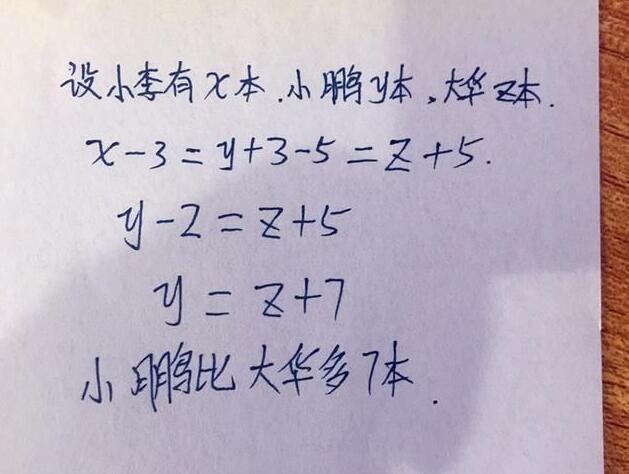 设小李有x本.小鹏y本,大华z本.
x-3=y+3-5=z+5.
y-2=z+5
y=z+7
小鹏比大华多7本.